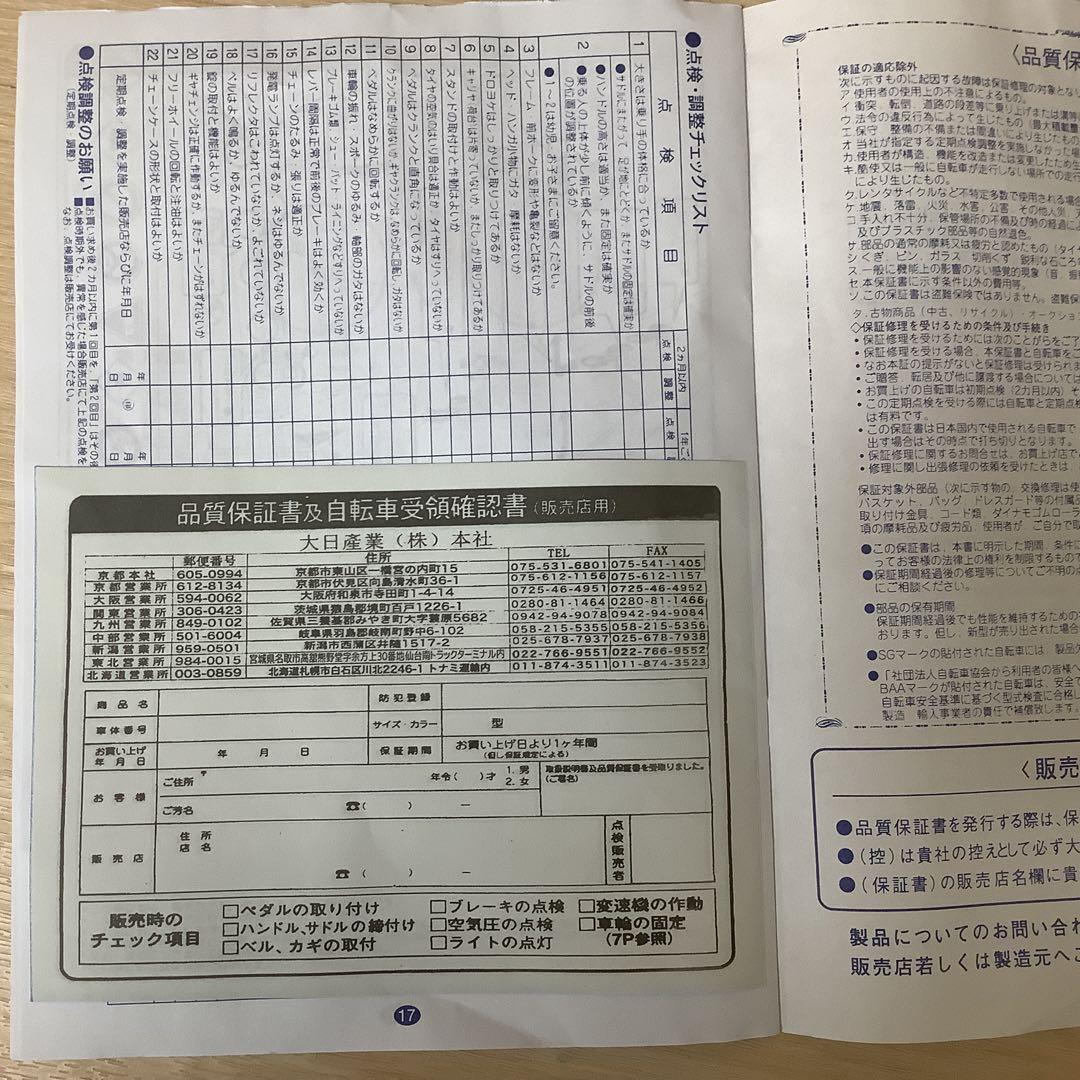 ●点検・調整チェックリスト
点検項目
2カ月以内
点検
調整
点検
1 大きさは乗り手の体格に合っているか
●サドルにまたがって 足が地にとどくか またサドルの固定は確実か
2 ●ハンドルの高さは適当か、また固定は確実か
●乗る人の上体が少し前に傾くように、サドルの前後の位置が調整されているか
●1～2は幼児、お子さまにご留意ください。
3 フレーム 前ホークに変形や亀裂などはないか
4 ヘッド、ハンガ小物にガタ 摩耗はないか
5 ドロヨケはしっかりと取りつけてあるか
6 キャリヤ(荷台)は片寄っていないか、またしっかり取りつけてあるか
7 スタンドの取り付けと作動はよいか
8 タイヤの空気のはいり具合は適正か、タイヤはすりへっていないか
9 ペダルはクランクと直角になっているか
10 クランクに曲がりはないか、ギヤクランクは、なめらかに回転し、ガタはないか
11 ペダルはなめらかに回転するか
12 車輪の振れ・スポークのゆるみ 軸部のガタはないか
13 ブレーキゴム類、シュー・パット ライニングなどすりへっていないか
14 レバー間隔は正常で前後のブレーキはよく効くか
15 チェーンのたるみ、張りは適正か
16 発電ランプは点灯するか、ネジはゆるんでないか
17 リフレクタはこわれていないか、よごれていないか
18 ベルはよく鳴るか、ゆるんでないか
19 錠の取り付と機能はよいか
20 ギヤチェンジは正常に作動するか、またチェーンがはずれないか
21 フリーホイールの回転と注油はよいか
22 チェーンケースの形状と取付はよいか
定期点検 調整を実施した販売店ならびに年月日
年 月 日 ㊞
年 月 日
●点検調整のお願い
(定期点検 調整)
■お買い求め後2カ月以内に第1回目を、「第2回目」はその後
■点検時期外でも、異常を感じた場合販売店にて上記の点検を
なお、点検調整は販売店にてお受けください。
品質保証書及自転車受領確認書(販売店用)
大日産業(株)本社
郵便番号 住所 TEL FAX
京都本社 605-0994 京都市東山区一橋宮の内町15 075-531-6801 075-541-1405
京都営業所 612-8134 京都市伏見区向島清水町36-1 075-612-1156 075-612-1157
大阪営業所 594-0062 大阪府和泉市寺田町1-4-14 0725-46-4951 0725-46-4952
関東営業所 306-0423 茨城県猿島郡境町百戸1226-1 0280-81-1464 0280-81-1466
九州営業所 849-0102 佐賀県三養基郡みやき町大字簑原5682 0942-94-9078 0942-94-9084
中部営業所 501-6004 岐阜県羽島郡岐南町野中6-102 058-215-5355 058-215-5356
新潟営業所 959-0501 新潟市西蒲区井随1517-2 025-678-7937 025-678-7938
東北営業所 984-0015 宮城県名取市高舘熊野堂字余方上30番地仙台南トラックターミナル内 022-766-9551 022-766-9552
北海道営業所 003-0859 北海道札幌市白石区川北2246-1 トナミ運輸内 011-874-3511 011-874-3523
商品名 防犯登録
車体番号 サイズ・カラー 型
お買い上げ年月日 年 月 日 保証期間 お買い上げ日より1ヶ年間
(但し保証規定による)
お客様 ご住所 〒 年令( )才 1. 男 2. 女
取扱説明書及品質保証書を受取りました。
(ご署名)
ご芳名 ☎( ) －
販売店 住所
店名
☎( ) －
点検販売者
販売時のチェック項目
□ペダルの取り付け □ブレーキの点検 □変速機の作動
□ハンドル、サドルの締付け □空気圧の点検 □車輪の固定
□ベル、カギの取付 □ライトの点灯 (7P参照)
17
〈品質保
保証の適応除外
次に示すものに起因する故障は保証修理の対象となり
ア 使用者の使用上の不注意によるもの。
イ 衝突 転倒、道路の段差等に乗り上げまたは溝等
ウ 法令の違反行為によって生じたもの 最大積載量
エ 保守 整備の不備または間違いにより生じたもの
オ 当社が指定する定期点検調整を実施しなかった場
カ. 使用者が構造、機能を改造または変更したため生
キ. 酷使又は一般に自転車が走行しない場所での走行
により生じたもの。
ク. レンタサイクルなど不特定多数で使用される場合
ケ 地震、落雷、火災 水害 公害 その他人災 天
コ 手入れ不十分、保管場所の不備及び時の経過によ
及びプラスチック部品等の自然退色。
サ. 部品の通常の摩耗又は疲労と認めたもの(タイヤ
シ くぎ、ピン、ガラス 切削くず 鋭利な石ころ
ス 一般に機能上の影響のない感覚的現象(音 振
セ 本保証書に示す条件以外の費用等。
ソ この保証書は盗難保険ではありません。盗難保
タ. 古物商品(中古、リサイクル)・オークション
◇保証修理を受けるための条件及び手続き
• 保証修理を受けるためには次のことがらをご了
• 保証修理を受ける場合、本保証書と自転車をご
• なお本証の提示がないと保証修理は受けられま
• ご贈答、転居及び他に譲渡する場合については
• お買上げの自転車は初期点検(2カ月以内)そ
• この定期点検を受ける際には自転車と定期点検
は有料です。
• この保証書は日本国内で使用される自転車で
出す場合はその時点で打ち切りとなります。
• 保証修理に関するお問合せは、お買上げ店で
• 修理に関し出張修理の依頼を受けたときは、
保証対象外部品(次に示す物の、交換修理は使
バスケット、バッグ、ドレスガード等の付属品
取り付け金具、コード類、ダイナモゴムローラ
項の摩耗品及び疲労品、使用者が、ご自分で取
●この保証書は、本書に明示した期間、条件に
ってお客様の法律上の権利を制限するもので
●保証期間経過後の修理等についてご不明の点
にご相談ください。
●部品の保有期間
保証期間経過後でも性能を維持するための部
おります。但し、新型が売り出された場合
●SGマークの貼付された自転車には 製品欠
●「社団法人自転車協会から利用者の皆様へ
BAAマークが貼付された自転車は、安全で
自転車安全基準に基づく型式検査に合格し
製造 輸入事業者の責任で補償致します。
〈販売
●品質保証書を発行する際は、保
●(控)は貴社の控えとして必ず大
●(保証書)の販売店名欄に貴
製品についてのお問い合わ
販売店若しくは製造元へご